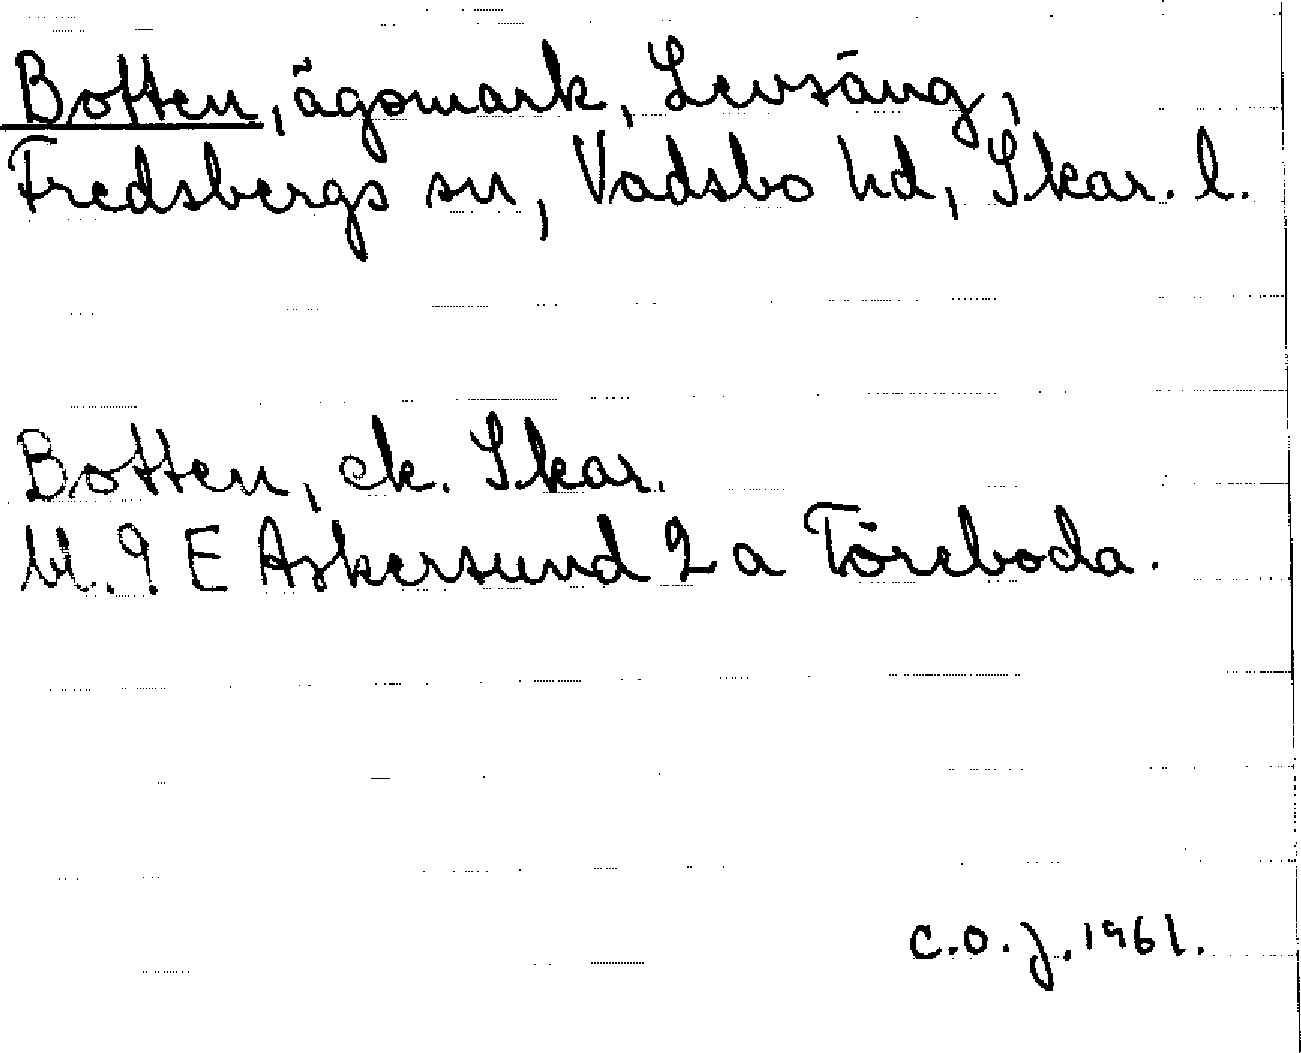 Botten, ägomark, Levsäng,
Fredsbergs sn, Vadsbo hd, Skar. l.
Botten, ek. Skar.
bl. 9 E Askersund 2 a Töreboda.
C.O.J. 1961.